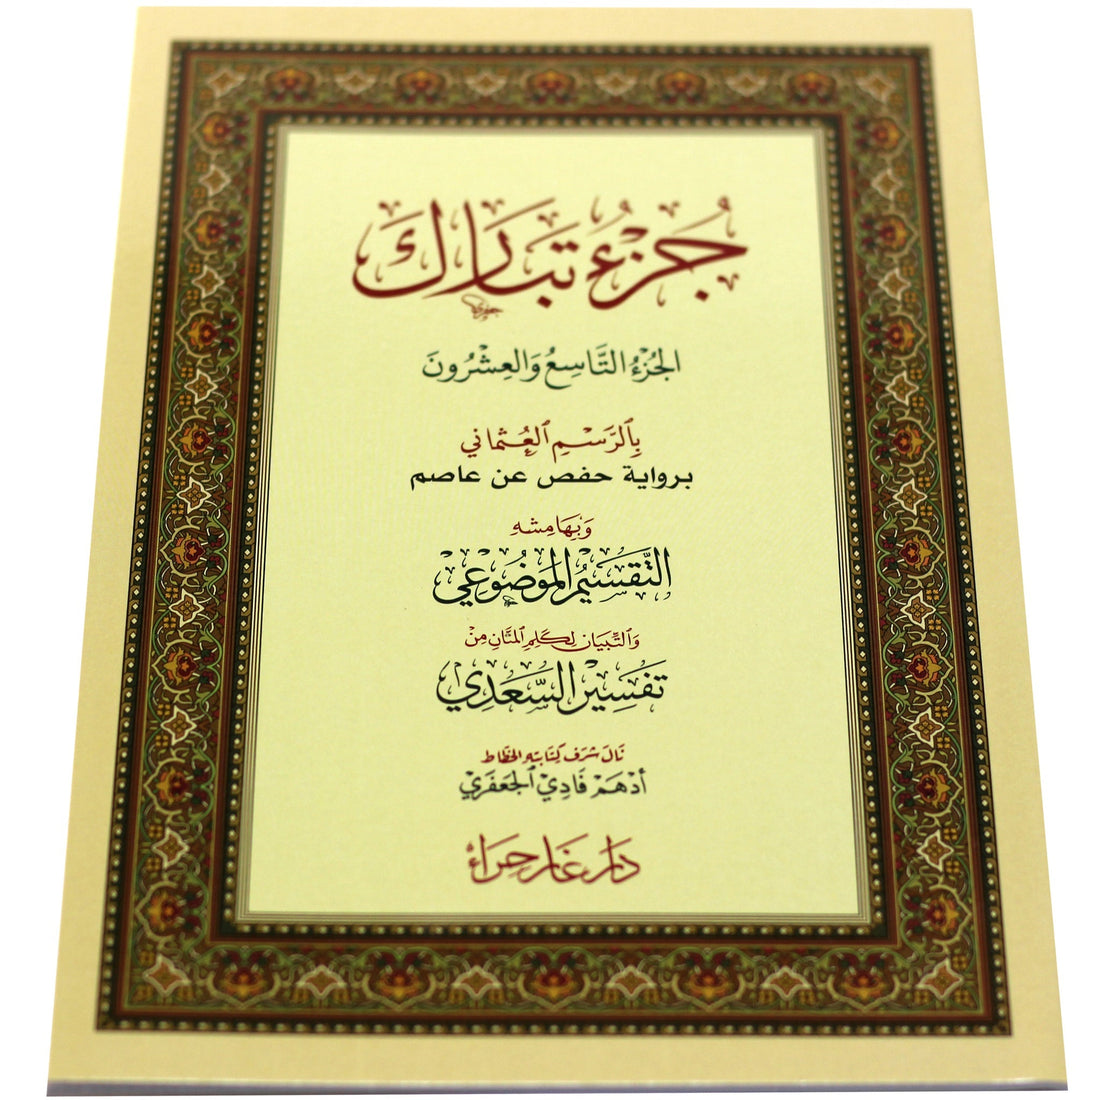 جُزْءُ تَبَارَكَ
الجُزْءُ التَّاسِعُ وَالعِشْرُونَ
بِالرَّسْمِ العُثْمَاني
برواية حفص عن عاصم
وَبِهَامِشِهِ
التَّقْسِيْمُ المَوْضُوْعِيْ
وَالتِّبْيَان لِكَلِمِ المَنَّانِ مِنْ
تَفْسِيْرِ السَّعْدِيْ
نَالَ شَرَفَ كِتَابَتِهِ الخَطَّاط
أَدْهَمْ فَادِيْ الجَعْفَرِيْ
دَار غَار حِرَاءْ